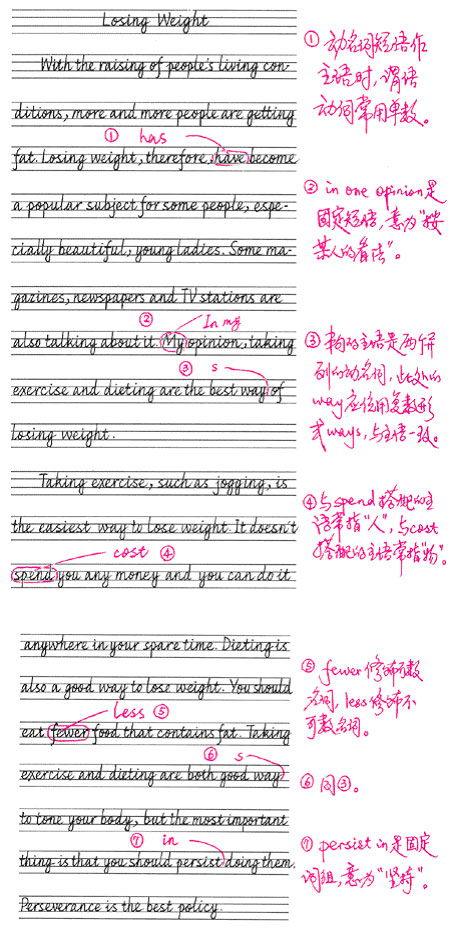 Losing Weight
With the raising of people's living con-
ditions, more and more people are getting
① has
fat. Losing weight, therefore, have become
a popular subject for some people, espe-
cially beautiful, young ladies. Some ma-
gazines, newspapers and TV stations are
② In my
also talking about it. My opinion, taking
③ s
exercise and dieting are the best way of
losing weight.
Taking exercise, such as jogging, is
the easiest way to lose weight. It doesn't
cost ④
spend you any money and you can do it
anywhere in your spare time. Dieting is
also a good way to lose weight. You should
less ⑤
eat fewer food that contains fat. Taking
⑥ s
exercise and dieting are both good way
to tone your body, but the most important
⑦ in
thing is that you should persist doing them.
Perseverance is the best policy.
① 动名词短语作
主语时,谓语
动词常用单数。
② in one opinion是
固定短语,意为"按
某人的看法"。
③ 主语是两个并
列的动名词,此处的
way应该用复数形
式ways,与主语一致。
④ 与spend搭配的主
语常指"人",与cost
搭配的主语常指"物"。
⑤ fewer修饰可数
名词,less修饰不
可数名词。
⑥ 同③。
⑦ persist in是固定
词组,意为"坚持"。